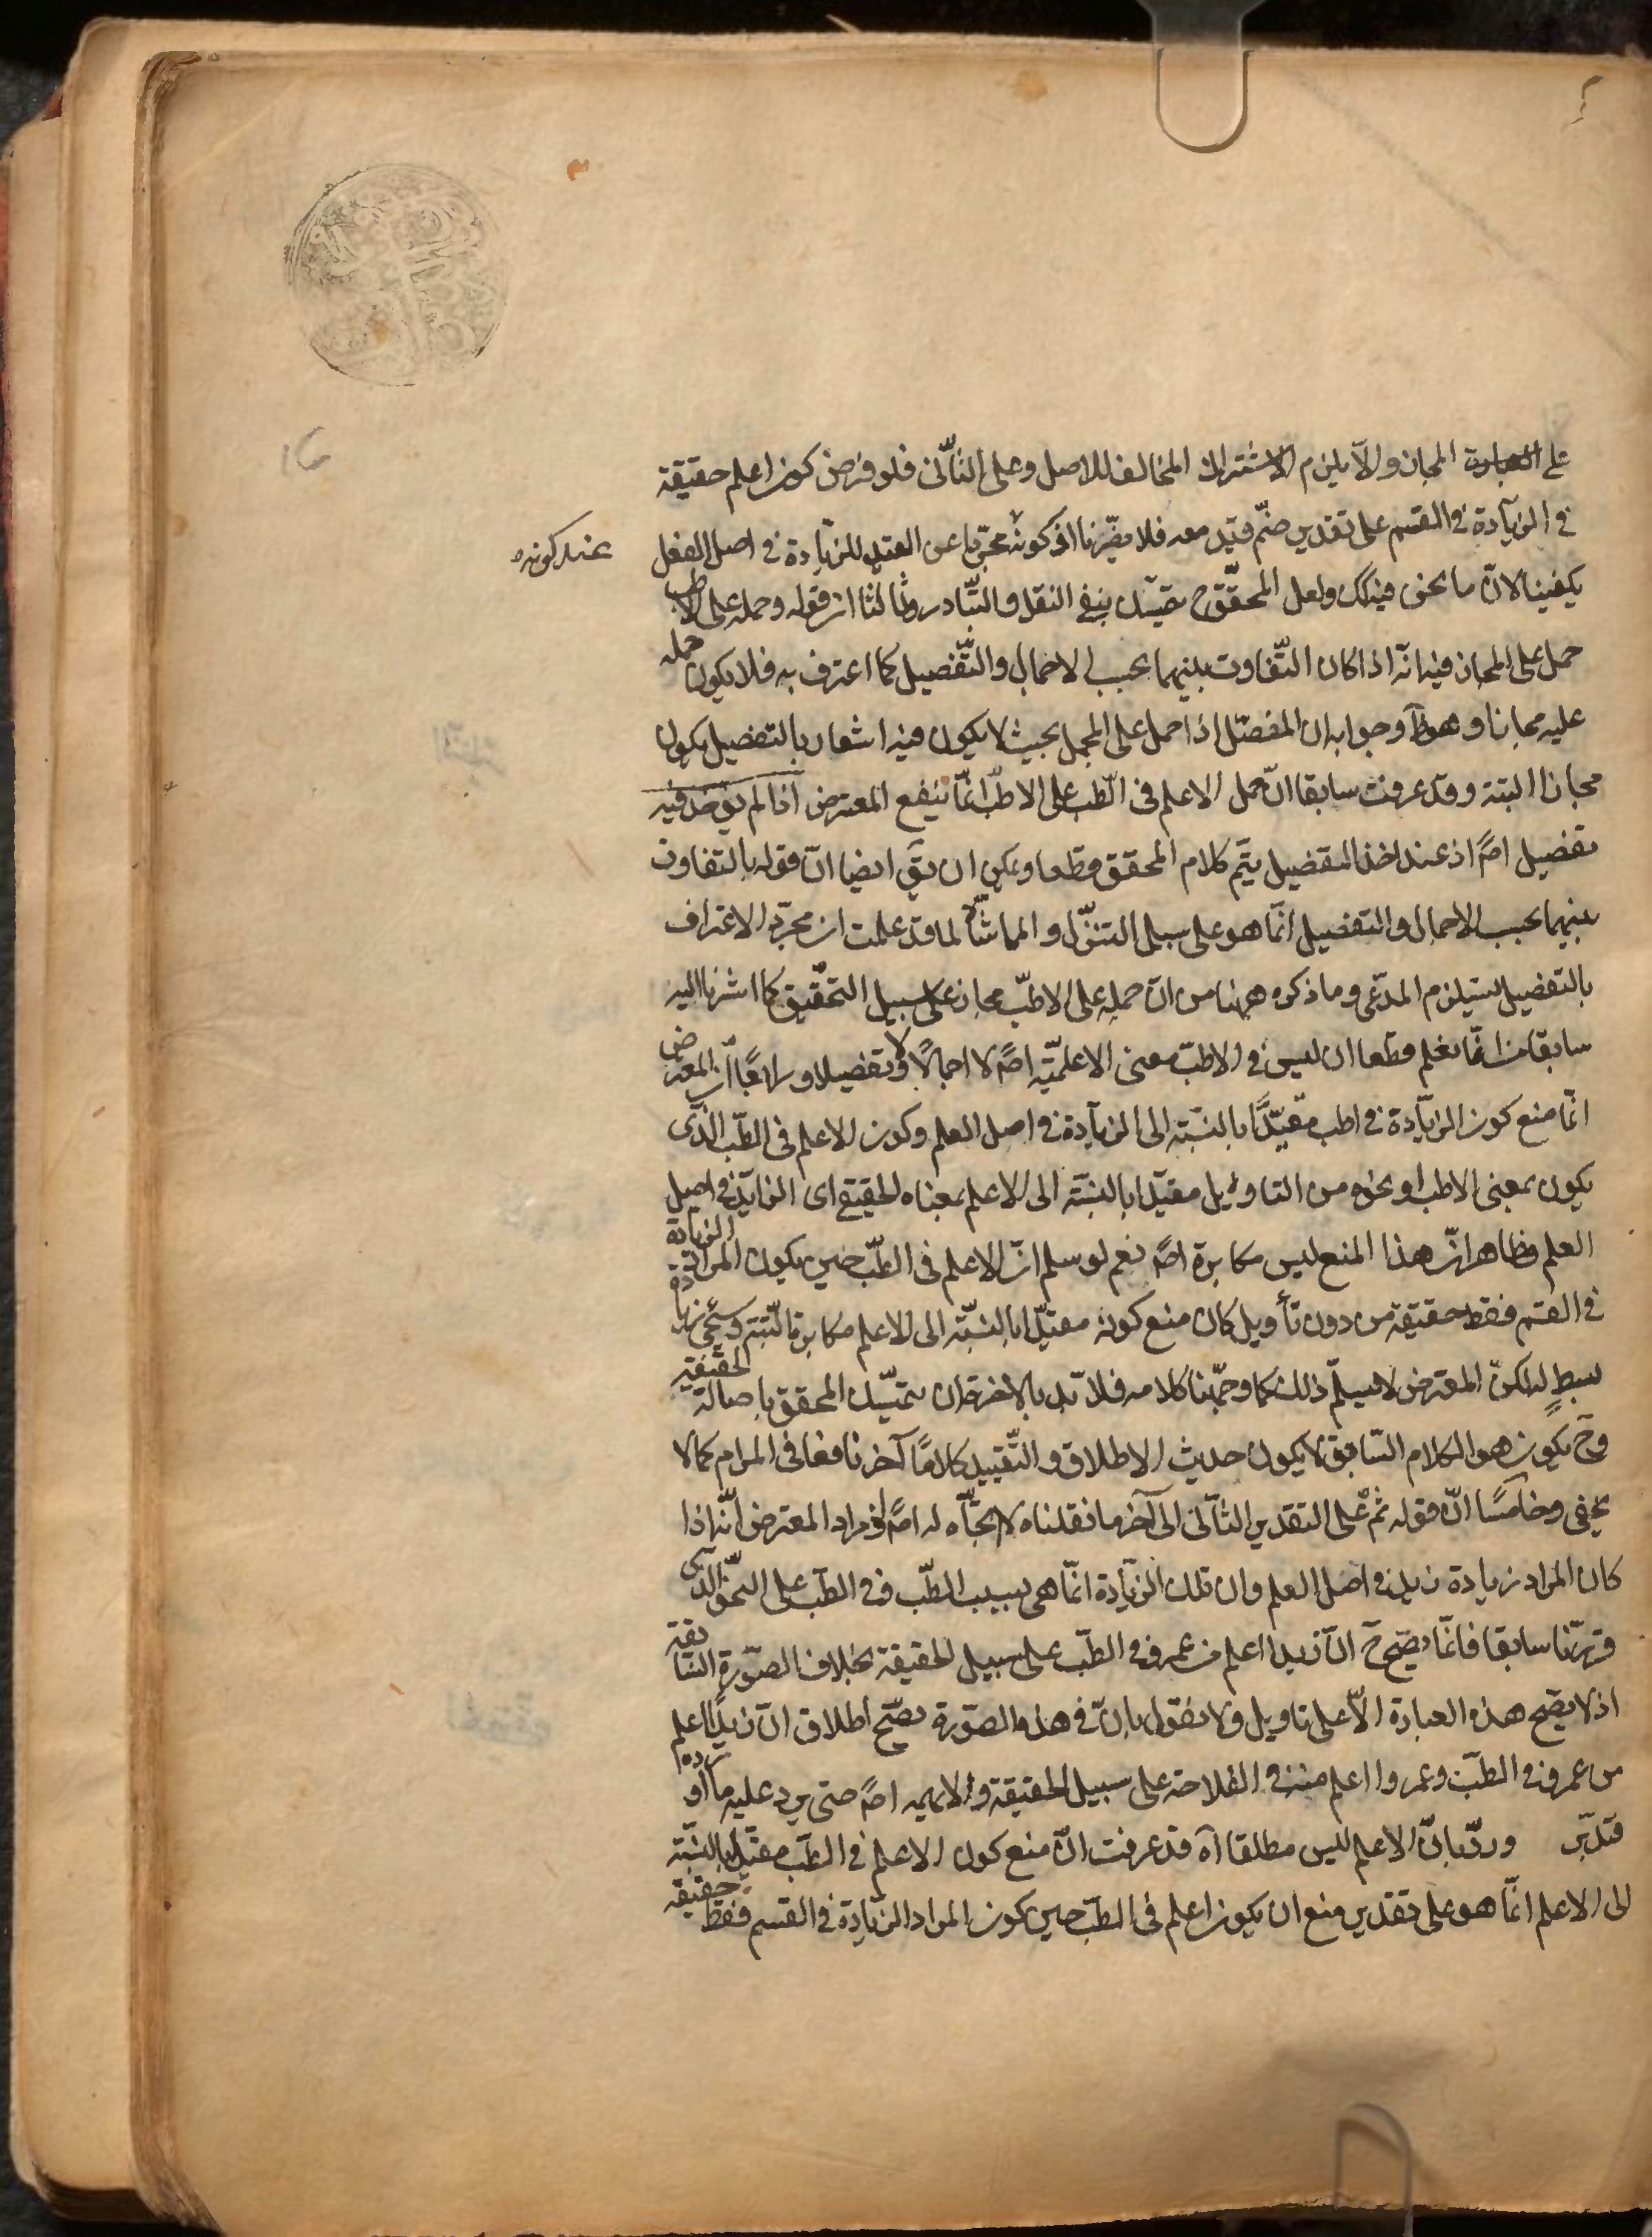 على العبارة المجاز والا يلزم الاشتراك المخالف للاصل وعلى الثاني فلو فرض كون اعلم حقيقة
في الزيادة في القسم على تقدير ضم قيد معه فلا يضرنا اذ كونه مجردا عن القيد للزيادة في اصل الفعل
عند كونه
يكفينا لان ما نحن فيه كك ولعل المحقق ح يتمسك بنفي النقل والتبادر وثالثا ان قوله وحمله على الاطب
حمل على المجاز فيه انه اذا كان التفاوت بينهما بحسب الاجمال والتفصيل كما اعترف به فلا يكون حمله
عليه مجازا وهو ظ وجوابه ان المفصل اذا حمل على المجمل بحيث لا يكون فيه اشعار بالتفصيل يكون
مجازا البتة وقد عرفت سابقا ان حمل الاعلم في الطب على الاطب انما ينفع المعترض اذا لم يؤخذ فيه
تفصيل اصً اذ عند اخذ التفصيل يتم كلام المحقق قطعا ويمكن ان يق ايضا ان قوله بالتفاوت
بينهما بحسب الاجمال والتفصيل انما هو على سبيل التنزل والمماشاة لما قد علمت ان مجرد الاعتراف
بالتفصيل يستلزم المدعى وما ذكره ههنا من ان حمله على الاطب مجاز على سبيل التحقيق كما اشرنا اليه
سابقا من انما نعلم قطعا ان ليس في الاطب معنى الاعلمية اصً لا اجمالا ولا تفصيلا ورابعا ان المعترض
انما منع كون الزيادة في اطب مقيدا بالنسبة الى الزيادة في اصل العلم وكون الاعلم في الطب الذي
يكون بمعنى الاطب او نحوه من التاويل مقيدا بالنسبة الى الاعلم بمعناه الحقيقي اى الزايد في اصل
العلم وظاهر ان هذا المنع ليس مكابرة اصً نعم لو سلم ان الاعلم في الطب حين يكون المراد الزيادة
في القسم فقط حقيقة من دون تأويل كان منع كونه مقيدا بالنسبة الى الاعلم مكابرة البتة وسيجئ زيادة
بسط لذلك المعترض لا يسلم ذلك كما وجهنا كلامه فلا بد بالاخرة ان يتمسك المحقق باصالة الحقيقة
وح يكون هو الكلام السابق لا يكون حديث الاطلاق والتقييد كلاما آخر نافعا في المرام كما لا
يخفى وخامسا ان قوله ثم على التقدير الثاني الى آخر ما نقلناه لا اتجاه له اصً اذ مراد المعترض انه اذا
كان المراد زيادة زيد في اصل العلم وان تلك الزيادة انما هي بسبب الطب في الطب على النحو الذي
قررنا سابقا فانما يصح ح ان زيدا اعلم من عمرو في الطب على سبيل الحقيقة بخلاف الصورة السابقة
اذ لا يصح هذه العبارة الا على تاويل ولا يقول بان في هذه الصورة يصح اطلاق ان زيدا اعلم
من عمرو في الطب وعمروا اعلم منه في الفلاحة على سبيل الحقيقة ولا اصً حتى يرد عليه ما اورده
فتدبر ورد بان الاعلم ليس مطلقا آه قد عرفت ان منع كون الاعلم في الطب مقيدا بالنسبة
الى الاعلم انما هو على تقدير منع ان يكون اعلم في الطب حين يكون المراد الزيادة في القسم فقط حقيقة